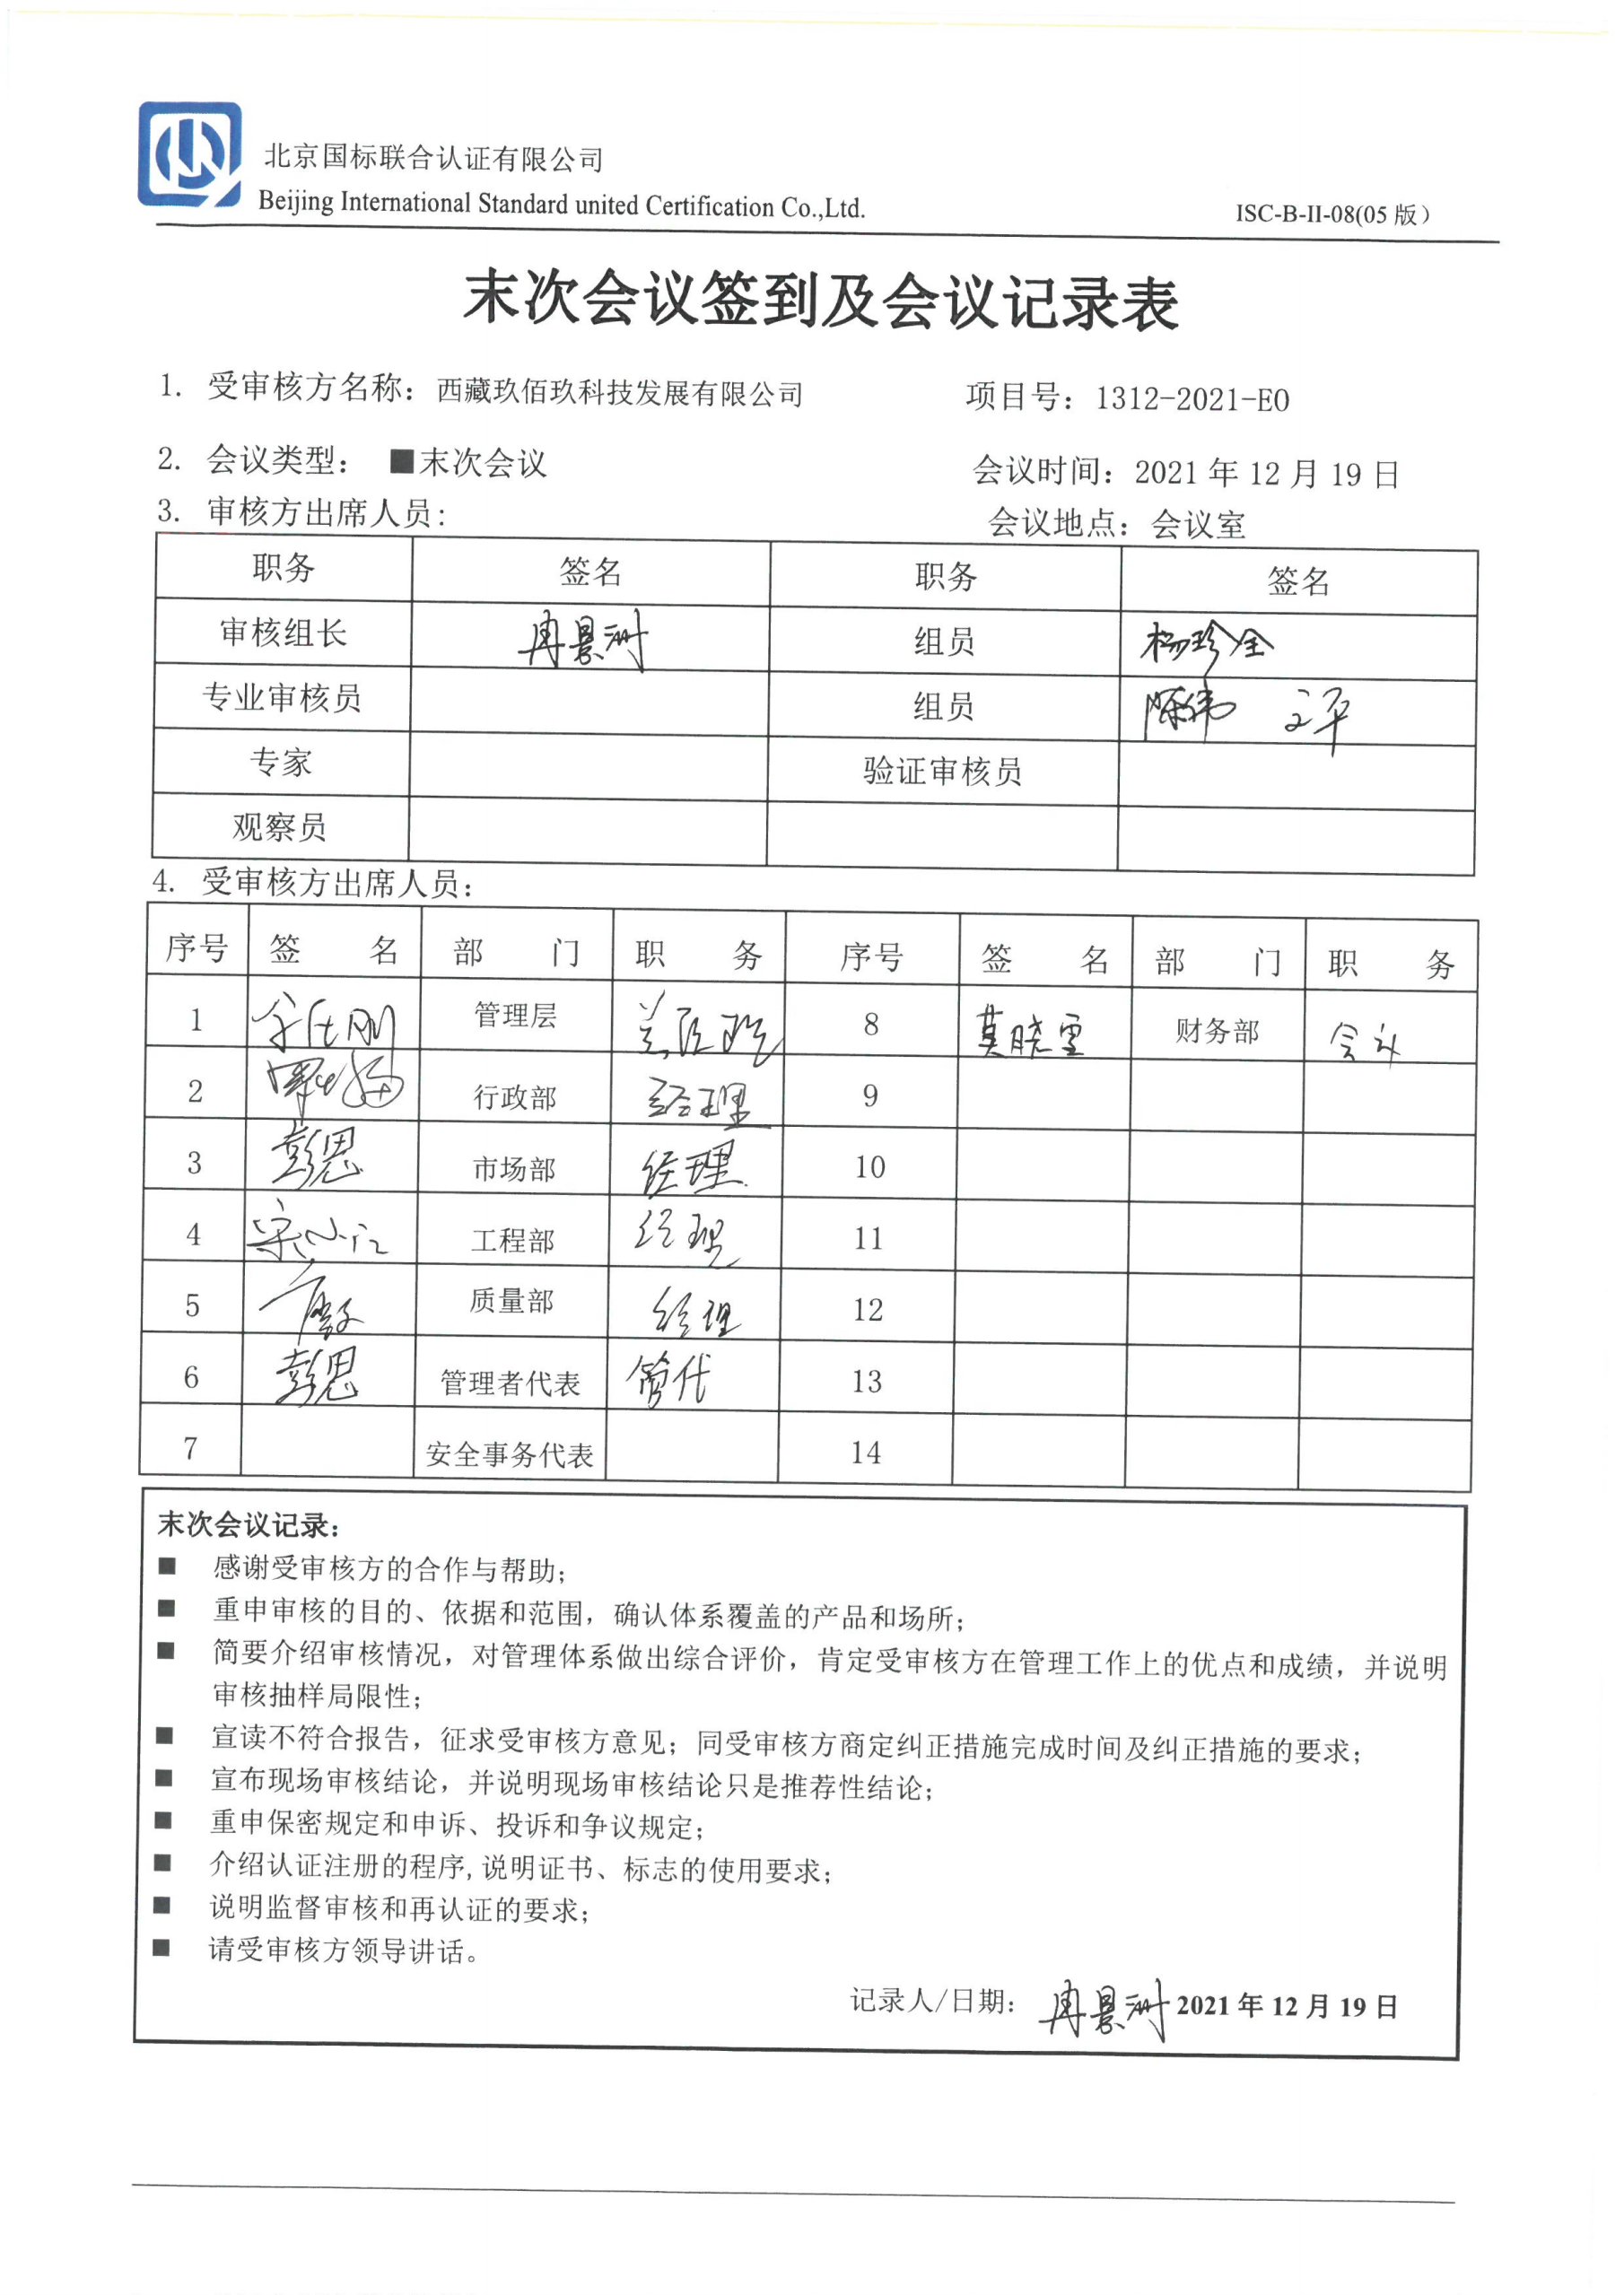 北京国标联合认证有限公司
Beijing International Standard united Certification Co.,Ltd.
ISC-B-II-08(05 版)
末次会议签到及会议记录表
1. 受审核方名称：西藏玖佰玖科技发展有限公司 项目号：1312-2021-EO
2. 会议类型： ■末次会议 会议时间：2021 年 12 月 19 日
3. 审核方出席人员： 会议地点：会议室
职务 签名 职务 签名
审核组长 冉景洲 组员 杨珍全
专业审核员 组员 陈伟 文平
专家 验证审核员
观察员
4. 受审核方出席人员：
序号 签 名 部 门 职 务 序号 签 名 部 门 职 务
1 管理层 8 莫晓雪 财务部 会计
2 行政部 经理 9
3 彭思 市场部 经理 10
4 宋小江 工程部 经理 11
5 质量部 经理 12
6 彭思 管理者代表 管代 13
7 安全事务代表 14
末次会议记录：
■ 感谢受审核方的合作与帮助；
■ 重申审核的目的、依据和范围，确认体系覆盖的产品和场所；
■ 简要介绍审核情况，对管理体系做出综合评价，肯定受审核方在管理工作上的优点和成绩，并说明
审核抽样局限性；
■ 宣读不符合报告，征求受审核方意见；同受审核方商定纠正措施完成时间及纠正措施的要求；
■ 宣布现场审核结论，并说明现场审核结论只是推荐性结论；
■ 重申保密规定和申诉、投诉和争议规定；
■ 介绍认证注册的程序,说明证书、标志的使用要求；
■ 说明监督审核和再认证的要求；
■ 请受审核方领导讲话。
记录人/日期： 冉景洲 2021 年 12 月 19 日